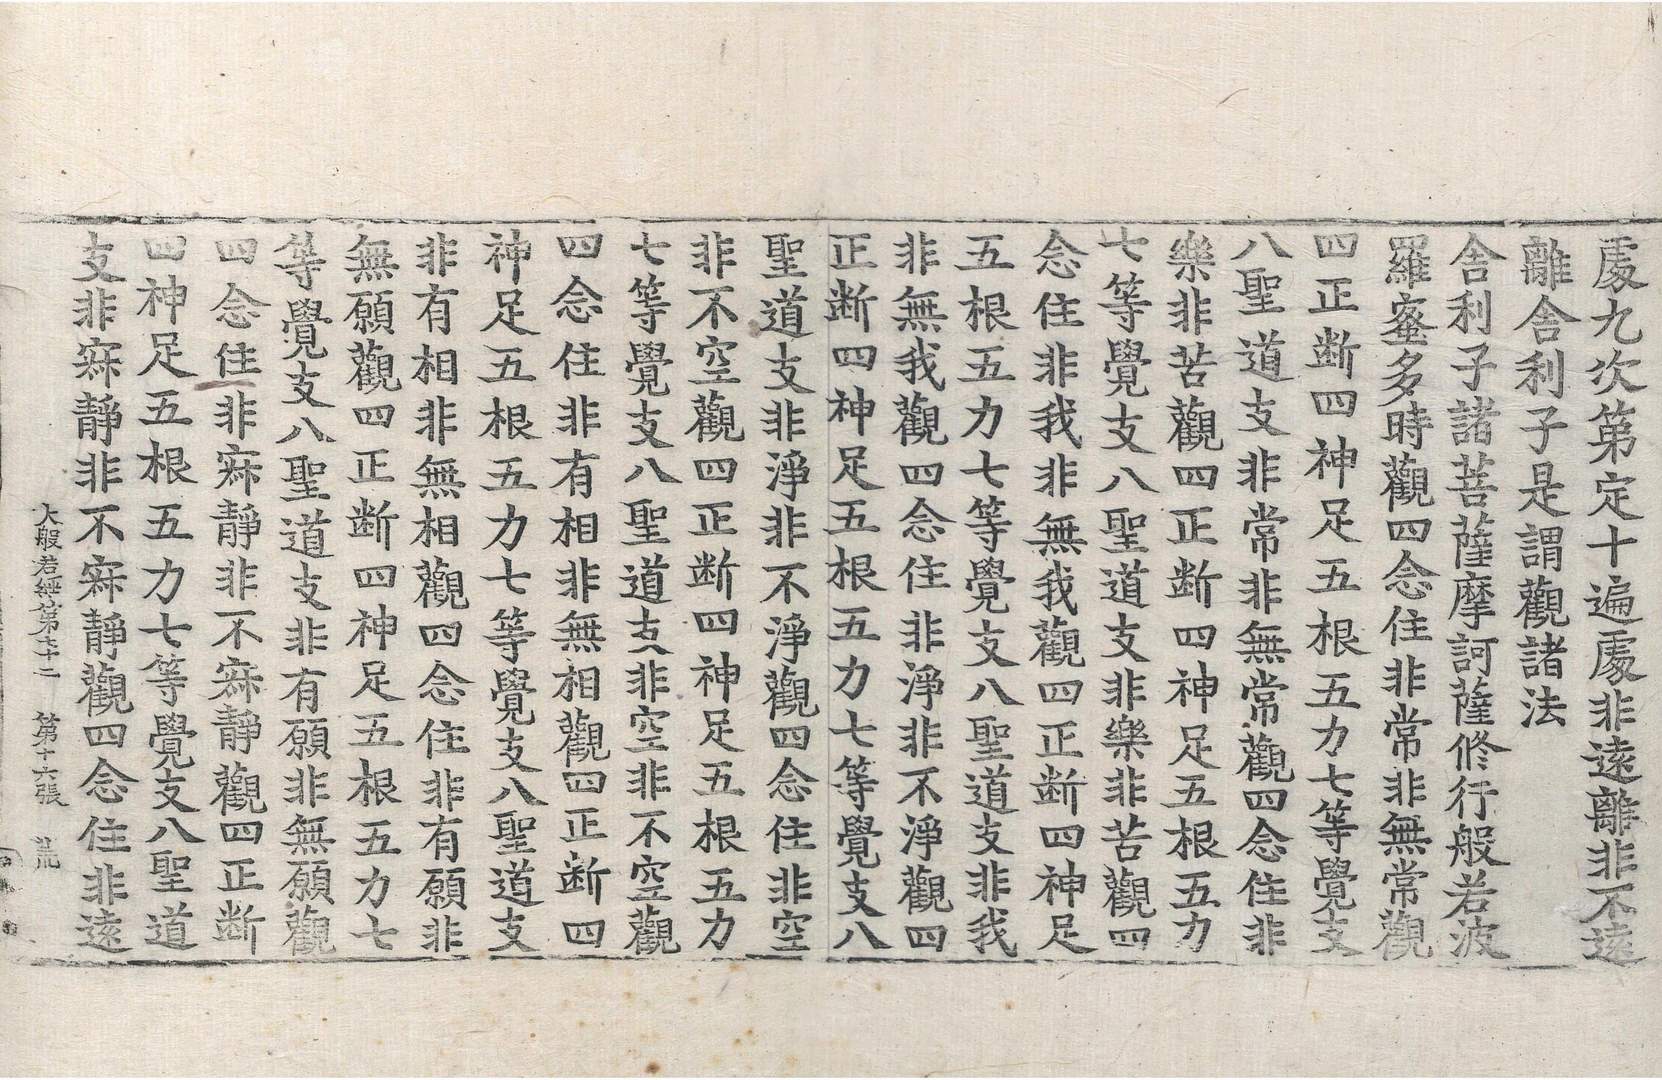 處九次第定十遍處非遠離非不遠
離舍利子是謂觀諸法
舍利子諸菩薩摩訶薩修行般若波
羅蜜多時觀四念住非常非無常觀
四正断四神足五根五力七等覺支
八聖道支非常非無常觀四念住非
樂非苦觀四正断四神足五根五力
七等覺支八聖道支非樂非苦觀四
念住非我非無我觀四正断四神足
五根五力七等覺支八聖道支非我
非無我觀四念住非淨非不淨觀四
正断四神足五根五力七等覺支八
聖道支非淨非不淨觀四念住非空
非不空觀四正断四神足五根五力
七等覺支八聖道支非空非不空觀
四念住非有相非無相觀四正断四
神足五根五力七等覺支八聖道支
非有相非無相觀四念住非有願非
無願觀四正断四神足五根五力七
等覺支八聖道支非有願非無願觀
四念住非寂靜非不寂靜觀四正断
四神足五根五力七等覺支八聖道
支非寂靜非不寂靜觀四念住非遠
大般若經第七十二 第十六張 荒